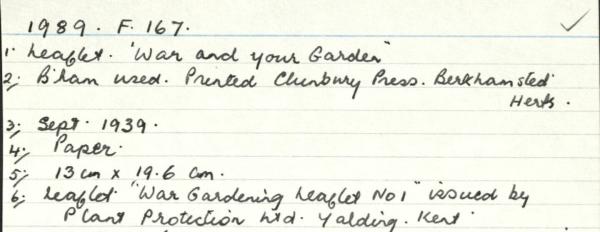 1989. F. 167.
1. Leaflet. "War and your Garden"
2. B'ham used. Printed Clunbury Press. Berkhamsted
Herts.
3. Sept. 1939.
4. Paper.
5. 13 cm x 19.6 cm.
6. Leaflet "War Gardening Leaflet No 1" issued by
Plant Protection Ltd. Yalding. Kent